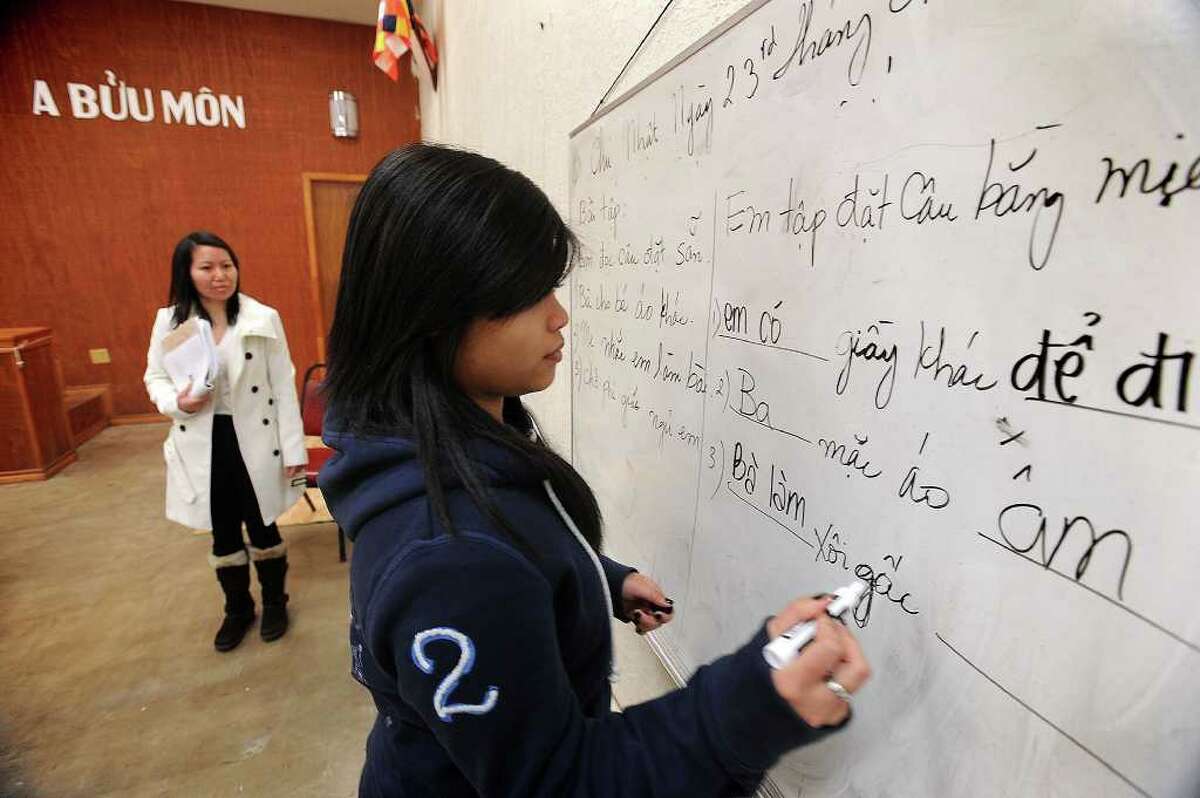 A BỬU MÔN
Chu Nhật Ngày 23rd tháng
Bài tập:
Em đọc câu đặt sẵn.
Bà cho bé áo khác.
2) Mẹ nhắc em làm bài.
3) Chị Phú giấc ngủ em
Em tập đặt Câu bằng
1) em có giấy khác để đi
2) Ba mặc áo ấm
3) Bà làm xôi gấc
2